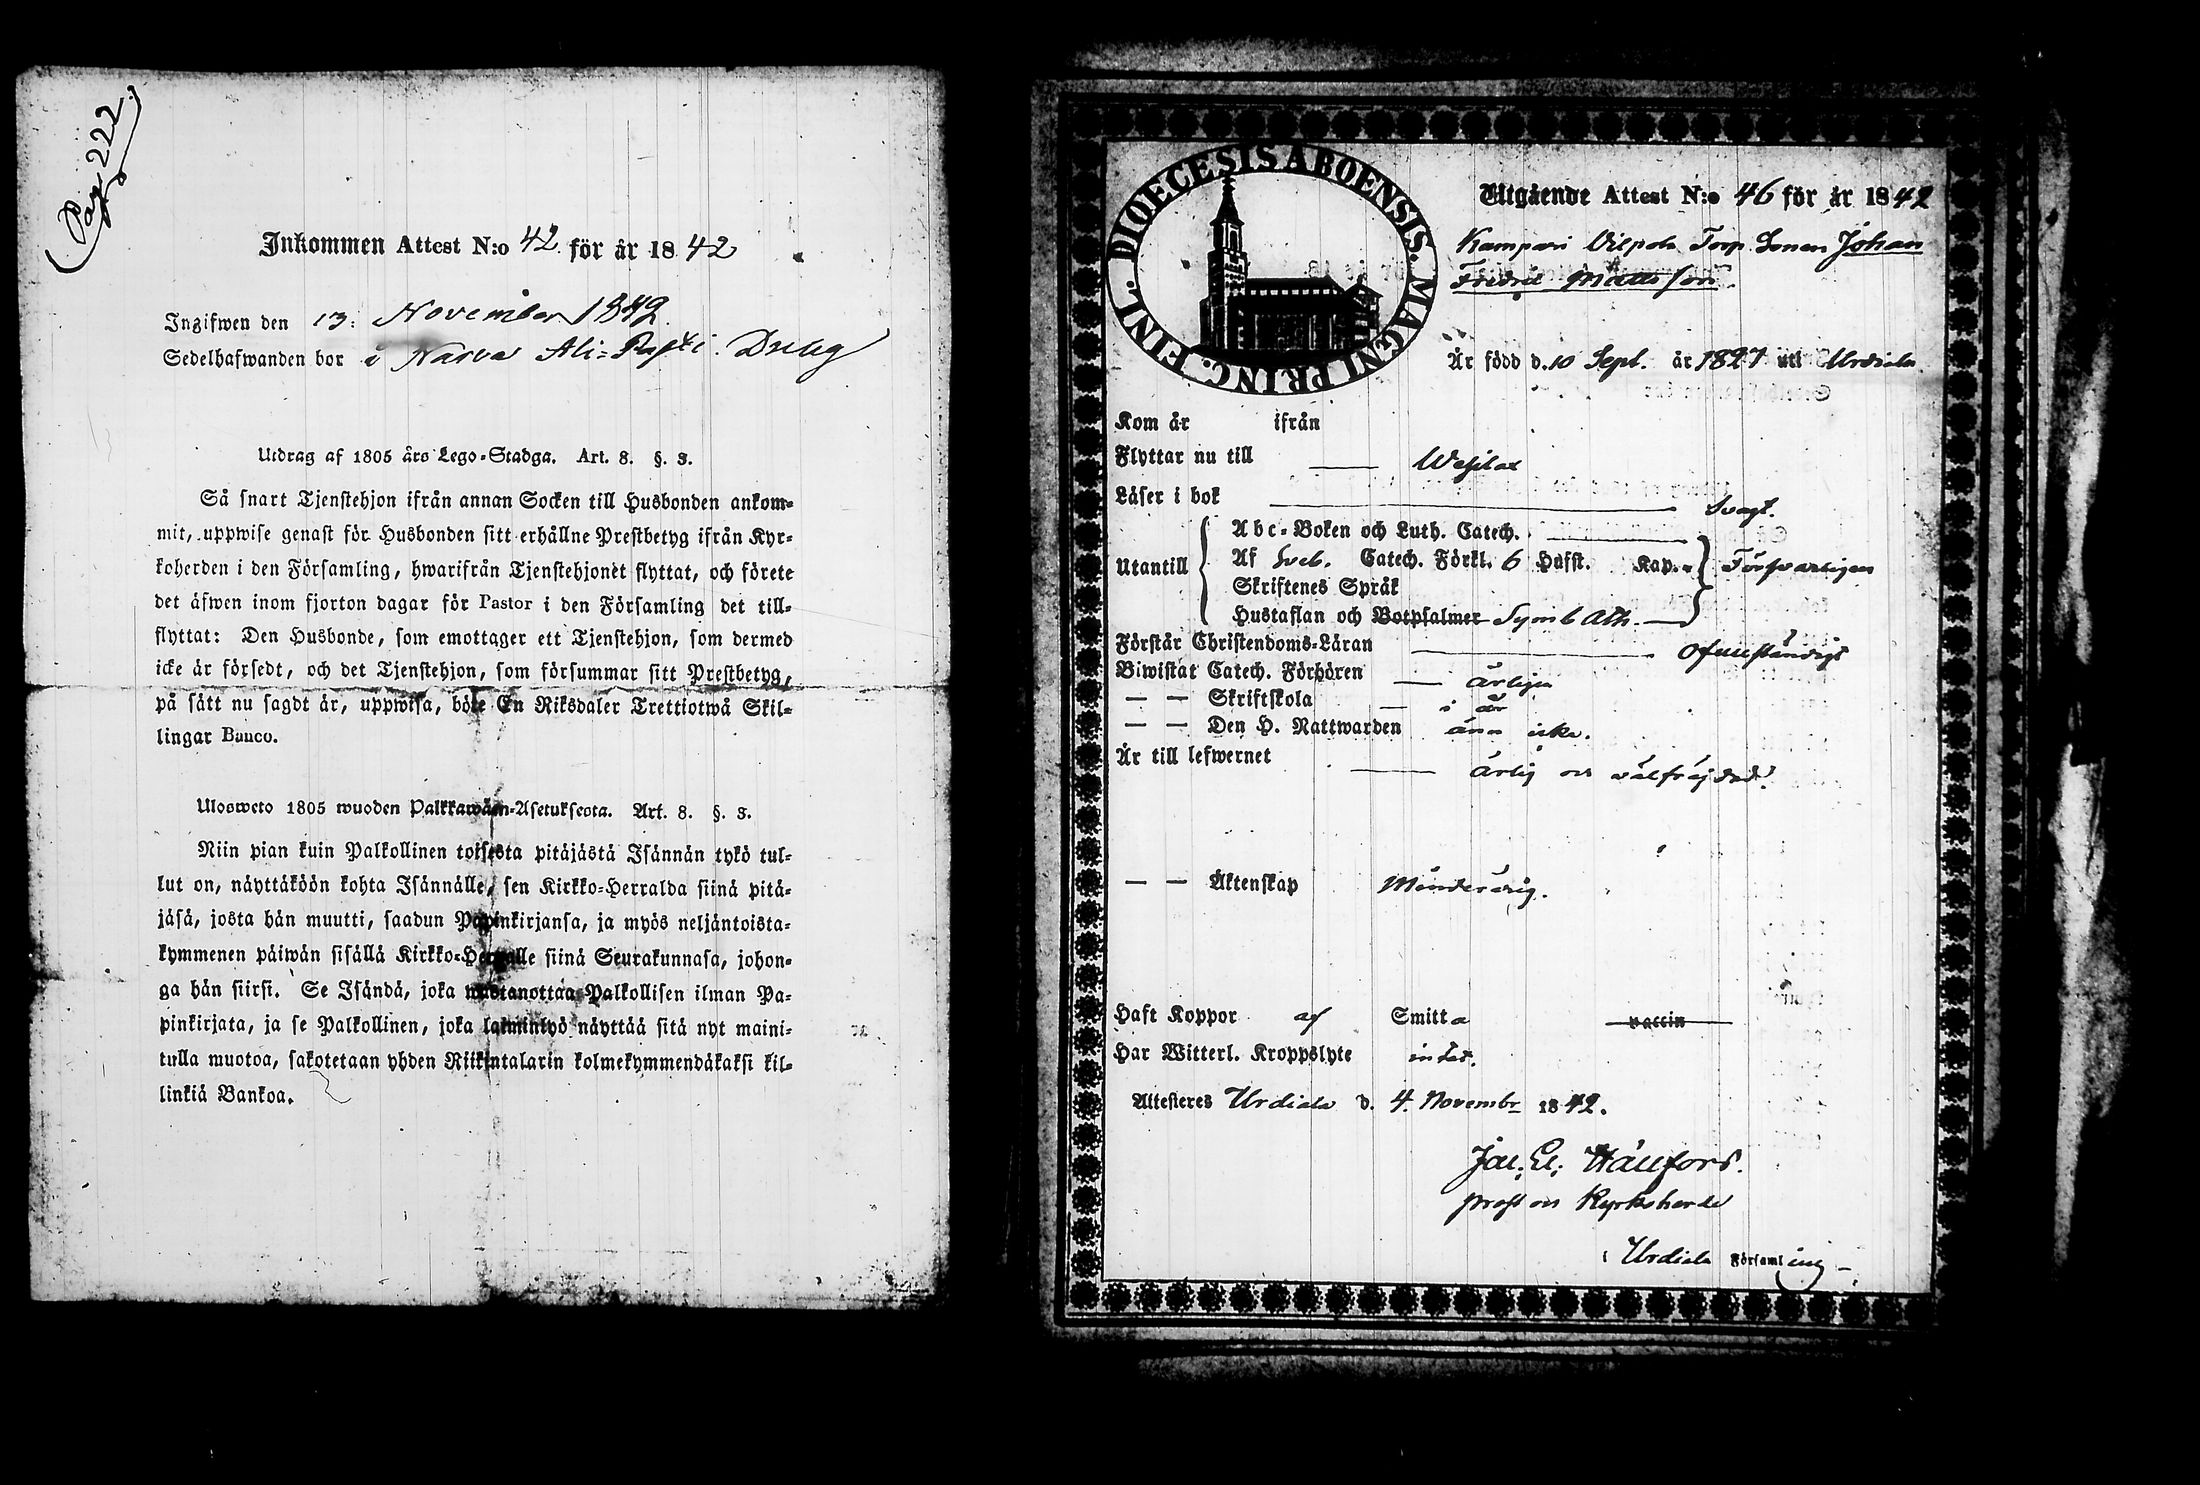 Pag 222
Inkommen Attest N:o 42 för år 1842
Ingifwen den 13: November 1842.
Sedelhafwanden bor i Narva Ali-Paxti Dreng
Utdrag af 1805 års Lego-Stadga. Art. 8. §. 3.
Så snart Tjenstehjon ifrån annan Socken till Husbonden ankom-
mit, uppwise genast för Husbonden sitt erhållne Prestbetyg ifrån Kyr-
koherden i den Församling, hwarifrån Tjenstehjonet flyttat, och förete
det äfwen inom fjorton dagar för Pastor i den Församling det till-
flyttat: Den Husbonde, som emottager ett Tjenstehjon, som dermed
icke är försedt, och det Tjenstehjon, som försummar sitt Prestbetyg,
på sätt nu sagdt är, uppwisa, böte En Riksdaler Trettiotwå Skil-
lingar Banco.
Ulosweto 1805 wuoden Palkkawäen-Asetuksesta. Art. 8. §. 3.
Niin pian kuin Palkollinen toisesta pitäjästä Isännän tykö tul-
lut on, näyttäköön kohta Isännälle, sen Kirkko-Herralda siinä pitä-
jäsä, josta hän muutti, saadun Papinkirjansa, ja myös neljäntoista-
kymmenen päiwän sisällä Kirkko-Herralle siinä Seurakunnasa, johon-
ga hän siirsi. Se Isändä, joka wastanottaa Palkollisen ilman Pa-
pinkirjata, ja se Palkollinen, joka laiminlyö näyttää sitä nyt maini-
tulla muotoa, sakotetaan yhden Riikintalarin kolmekymmendäkaksi kil-
linkiä Bankoa.
DIOECESIS ABOENSIS. MAGNI PRINC. FINL.
Utgående Attest N:o 46 för år 1842
Kampari Vilpola Torp Sonen Johan
Fredric Matts son
Är född d. 10 Sept. år 1827 uti Urdiala
Kom år ifrån
Flyttar nu till Wesilax
Läser i bok Svagt.
Utantill
Abc-Boken och Luth. Catech.
Af Sveb. Catech. Förkl. 6 Hufst. Kap.
Skriftenes Språk
Hustaflan och Botpsalmer Symb Ath.
Försvarligen
Förstår Christendoms-Läran Ofullständigt
Biwistat Catech. Förhören årligen
— — Skriftskola i år
— — Den H. Nattwarden ännu icke.
Är till lefwernet ärlig och välfräjdad.
— — Äktenskap Minderårig.
Haft Koppor af Smitta vaccin
Har Witterl. Kroppslyte intet.
Attesteres Urdiala d. 4. Novembr 1842.
Jac. El. Hällfors.
prost och Kyrkoherde
i Urdiala Församling